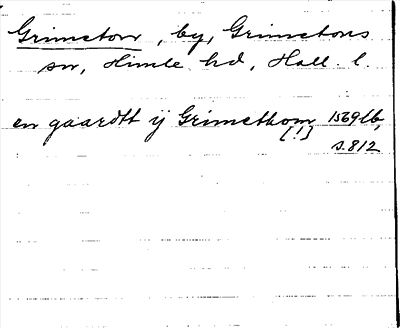 Grimeton, by, Grimetons
sn, Himle hd, Hall. l.
en gaardtt ij Grimethom 1569 lb,
[!]
s. 812